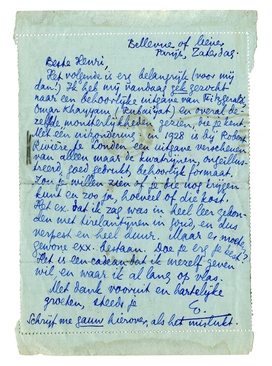 Bellevue of liever
Parijs, Zaterdag.
Beste Henri,
Het volgende is erg belangrijk (voor mij
dan!) Ik heb mij vandaag gek gezocht
naar een behoorlijke uitgave van Fitzgerald's
Omar Khayyam (Rubaiyat) en overal de-
zelfde monsterlijkheden gezien, die je kent.
Met een uitzondering: in 1928 is bij Robert
Rivière te Londen een uitgave verschenen
van alleen maar de kwatrijnen, ongeïllus-
treerd, goed gedrukt, behoorlijk formaat.
Zou je willen zien of je die nog krijgen
kunt en zoo ja, hoeveel of die kost.
Het ex. dat ik zag was in heel leer gebon-
den met tierlantijnen in goud, en dus
verpest en heel duur. Maar er moeten
gewone exx. bestaan. Doe je erg je best?
Het is een cadeau dat ik mezelf geven
wil, en waar ik al lang op vlas.
Met dank vooruit en hartelijke
groeten, steeds je
E.
Schrijf me gauw hierover, als het mislukt.